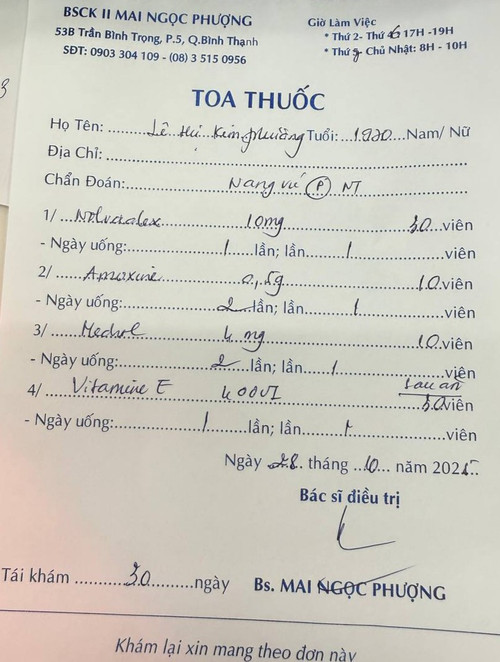 BSCK II MAI NGỌC PHƯỢNG
53B Trần Bình Trọng, P.5, Q.Bình Thạnh
SĐT: 0903 304 109 - (08) 3 515 0956
Giờ Làm Việc
* Thứ 2- Thứ 6 17H -19H
* Thứ 7- Chủ Nhật: 8H - 10H
TOA THUỐC
Họ Tên: Lê Thị Kim Phường Tuổi: 1980 Nam/ Nữ
Địa Chỉ:
Chẩn Đoán: Nang vú (P) NT
1/ Nolvadex 10mg 30 viên
- Ngày uống: 1 lần; lần 1 viên
2/ Amoxine 0,5g 10 viên
- Ngày uống: 2 lần; lần 1 viên
3/ Medrol 4 mg 10 viên
- Ngày uống: 2 lần; lần 1 viên
sau ăn
4/ Vitamine E 400UI 30 viên
- Ngày uống: 1 lần; lần 1 viên
Ngày 28 tháng 10 năm 202
Bác sĩ điều trị
Tái khám 30 ngày Bs. MAI NGỌC PHƯỢNG
Khám lại xin mang theo đơn này